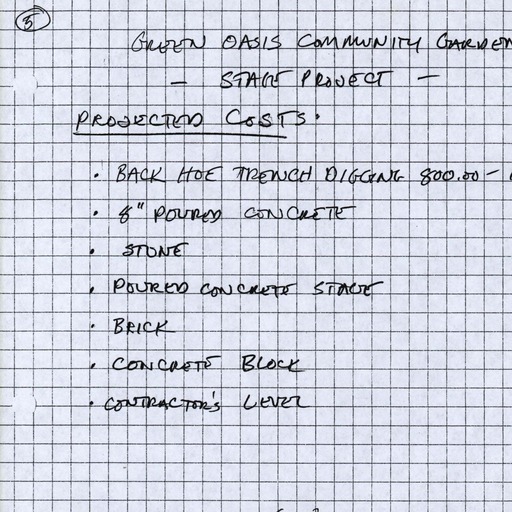 5
GREEN OASIS COMMUNITY GARDEN
- STAGE PROJECT -
PROJECTED COSTS.
• BACK HOE TRENCH DIGGING 800.00 -
• 8" POURED CONCRETE
• STONE
• POURED CONCRETE STAGE
• BRICK
• CONCRETE BLOCK
• CONTRACTOR'S LEVEL